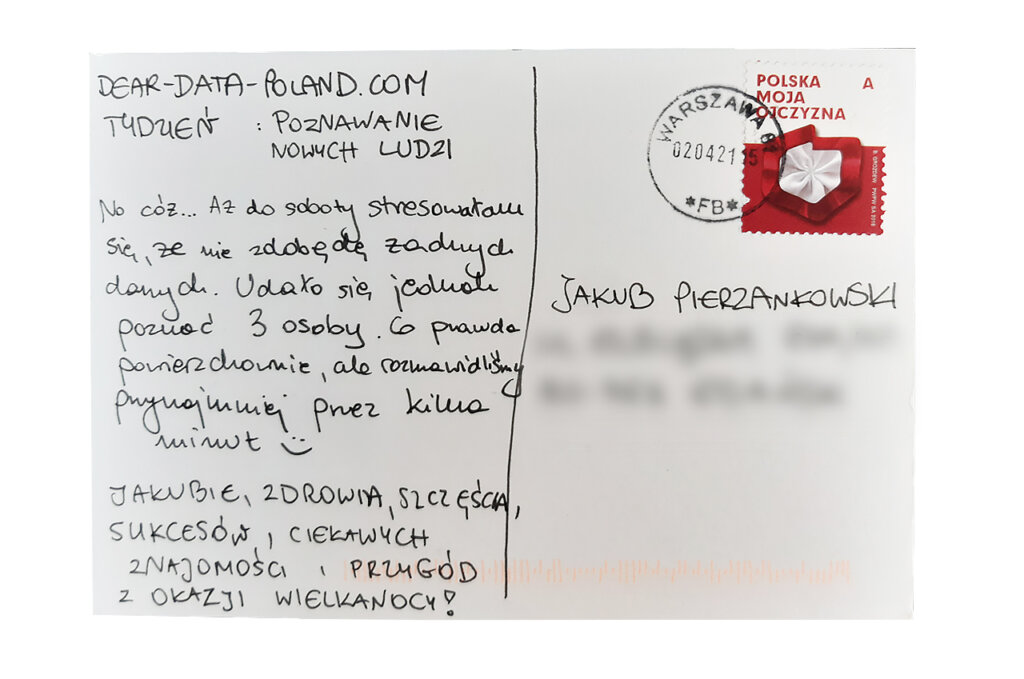 DEAR-DATA-POLAND.COM
TYDZIEŃ : POZNAWANIE
NOWYCH LUDZI
No cóż... Aż do soboty stresowałam
się, że nie zdobędę żadnych
danych. Udało się jednak
poznać 3 osoby. Co prawda
powierzchownie, ale rozmawialiśmy
przynajmniej przez kilka
minut
JAKUBIE, ZDROWIA, SZCZĘŚCIA,
SUKCESÓW, CIEKAWYCH
ZNAJOMOŚCI I PRZYGÓD
Z OKAZJI WIELKANOCY!
POLSKA A
MOJA
OJCZYZNA
B. GROZDEW PWPW SA 2018
WARSZAWA
020421 15
*FB*
JAKUB PIERZANKOWSKI